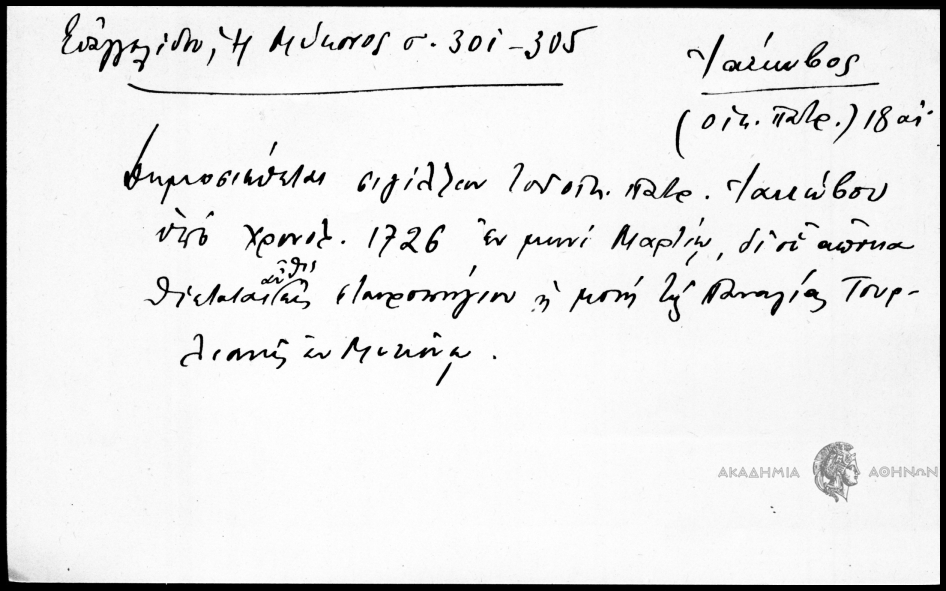 Εὐαγγελίδου, Ἡ Μύκονος σ. 301-305
Ἰάκωβος
(οἰκ. πατρ.) 18 αἰ.
Δημοσιεύεται σιγίλλιον τοῦ οἰκ. πατρ. Ἰακώβου
ὑπὸ χρονολ. 1726 ἐν μηνὶ Μαρτίῳ, δι' οὗ ἀποκα
θίσταται αὖθις σταυροπήγιον ἡ μονὴ τῆς Παναγίας Τουρ-
λιανῆς ἐν Μυκόνῳ.
ΑΚΑΔΗΜΙΑ ΑΘΗΝΩΝ